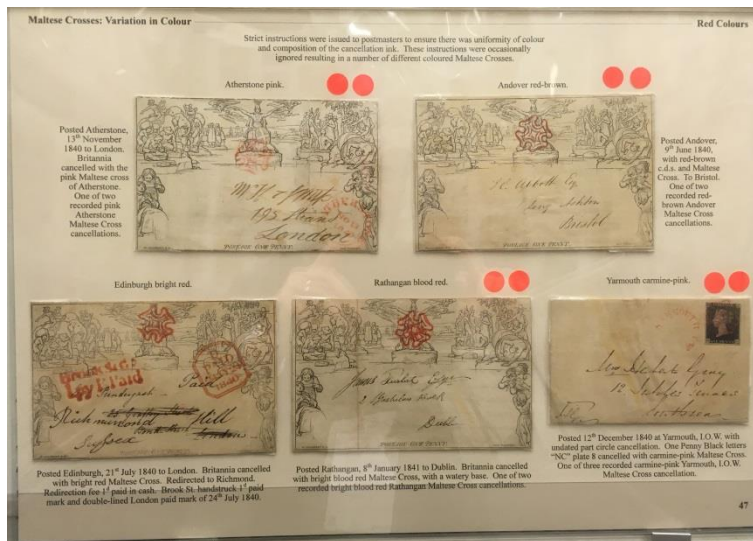 Maltese Crosses: Variation in Colour
Red Colours
Strict instructions were issued to postmasters to ensure there was uniformity of colour
and composition of the cancellation ink. These instructions were occasionally
ignored resulting in a number of different coloured Maltese Crosses.
Atherstone pink.
Posted Atherstone,
13th November
1840 to London.
Britannia
cancelled with the
pink Maltese cross
of Atherstone.
One of two
recorded pink
Atherstone
Maltese Cross
cancellations.
195 Strand
London
POSTAGE ONE PENNY.
Andover red-brown.
Abbott Esq
Long Ashton
Bristol
POSTAGE ONE PENNY.
Posted Andover,
9th June 1840,
with red-brown
c.d.s. and Maltese
Cross. To Bristol.
One of two
recorded red-
brown Andover
Maltese Cross
cancellations.
Edinburgh bright red.
Brook St.
Paid
Richmond Hill
POSTAGE ONE PENNY.
Posted Edinburgh, 21st July 1840 to London. Britannia cancelled
with bright red Maltese Cross. Redirected to Richmond.
Redirection fee 1d paid in cash. Brook St. handstruck 1d paid
mark and double-lined London paid mark of 24th July 1840.
Rathangan blood red.
POSTAGE ONE PENNY.
Posted Rathangan, 8th January 1841 to Dublin. Britannia cancelled
with bright blood red Maltese Cross, with a watery base. One of two
recorded bright blood red Rathangan Maltese Cross cancellations.
Yarmouth carmine-pink.
Posted 12th December 1840 at Yarmouth, I.O.W. with
undated part circle cancellation. One Penny Black letters
"NC" plate 8 cancelled with carmine-pink Maltese Cross.
One of three recorded carmine-pink Yarmouth, I.O.W.
Maltese Cross cancellation.
47